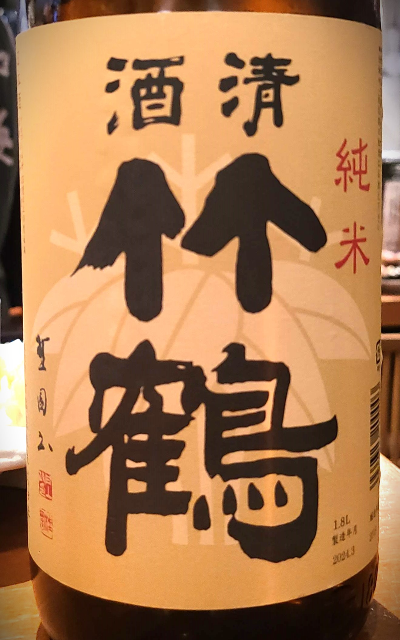 清酒
純米
竹鶴
1.8L
製造年月
2024.3